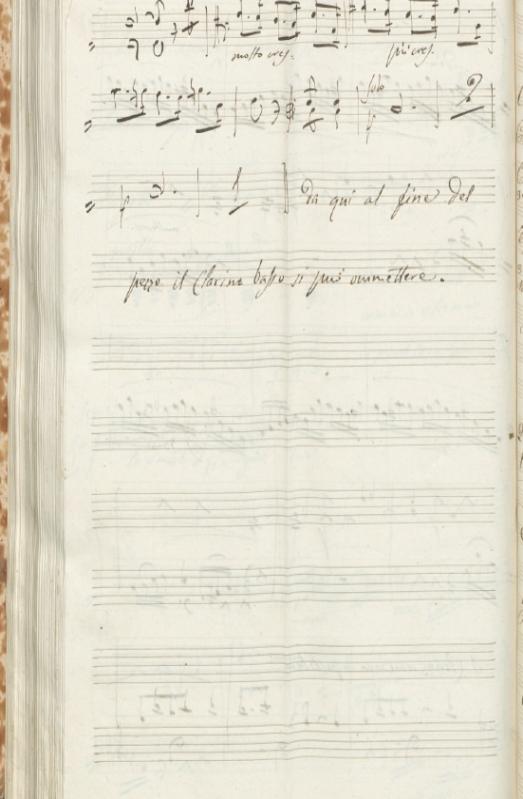 molto cres. più cres.
Solo
p
p 1 Da qui al fine del
pezzo il Clarino basso si può ommettere.